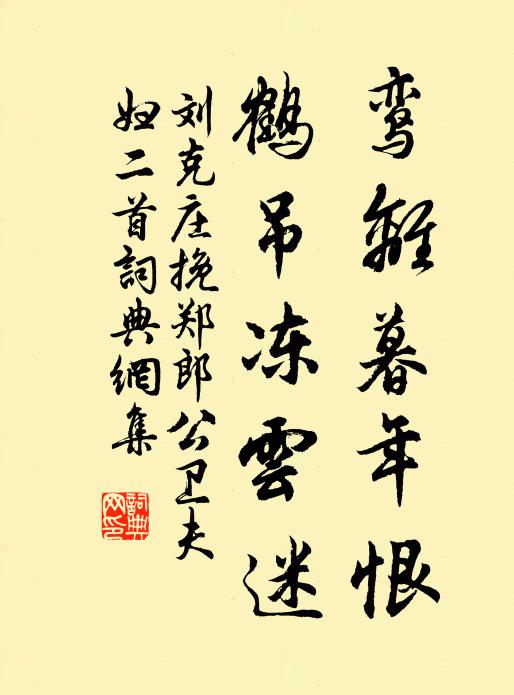 鸾離暮年恨
鹤吊冻雲迷
刘克庄挽郑郎公卫夫
妇二首詞典網集
詞典
网印